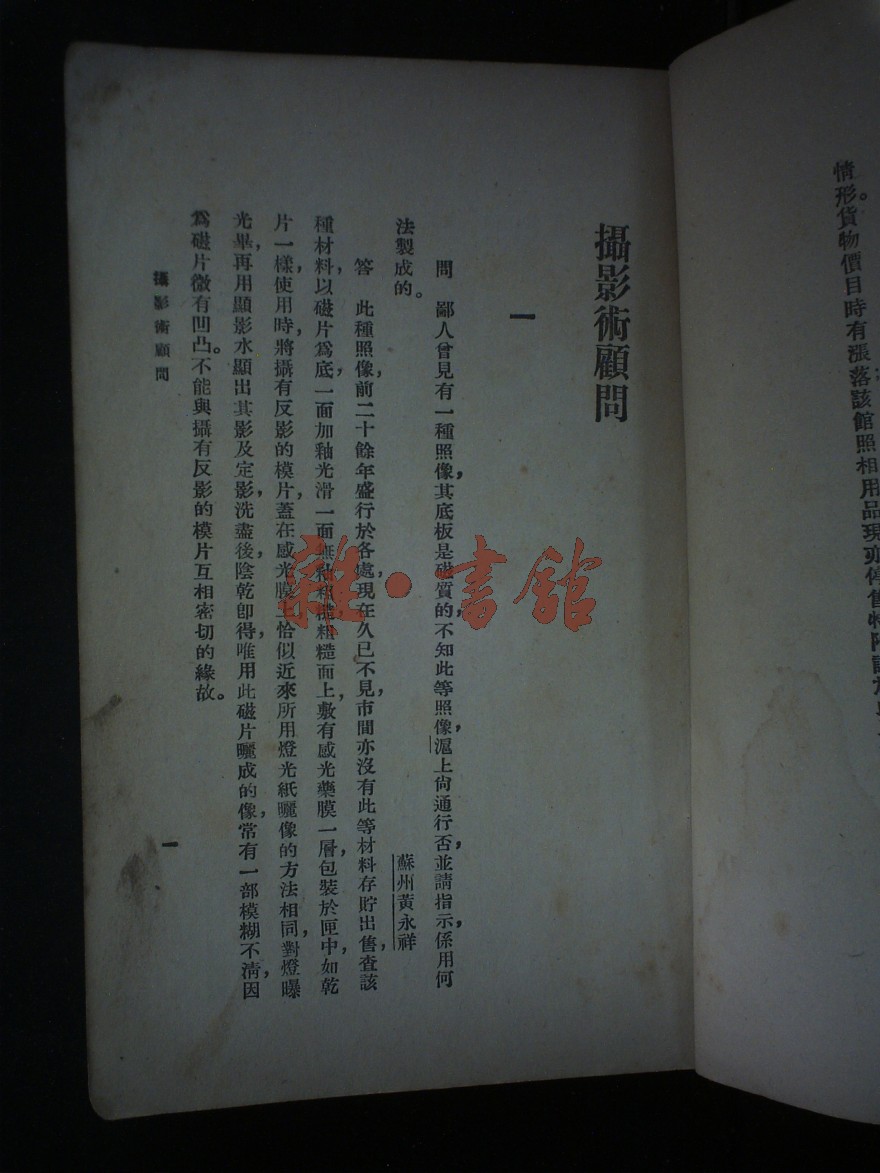 情形。貨物價目時有漲落該館照相用品現亦停售特附
攝影術顧問
一
問　鄙人曾見有一種照像，其底板是磁質的，不知此等照像，滬上尙通行否，並請指示，係用何
法製成的。
蘇州黃永祥
答　此種照像，前二十餘年盛行於各處，現在久已不見，市間亦沒有此等材料存貯出售，查該
種材料，以磁片爲底，一面加釉光滑，一面無釉粗糙，粗糙面上，敷有感光藥膜一層，包裝於匣中，如乾
片一樣，使用時，將攝有反影的模片，蓋在感光膜上，恰似近來所用燈光紙曬像的方法相同，對燈曝
光畢，再用顯影水顯出其影，及定影，洗盡後，陰乾卽得，唯用此磁片曬成的像，常有一部模糊不淸，因
爲磁片微有凹凸。不能與攝有反影的模片互相密切的緣故。
攝影術顧問
一
雜·書館